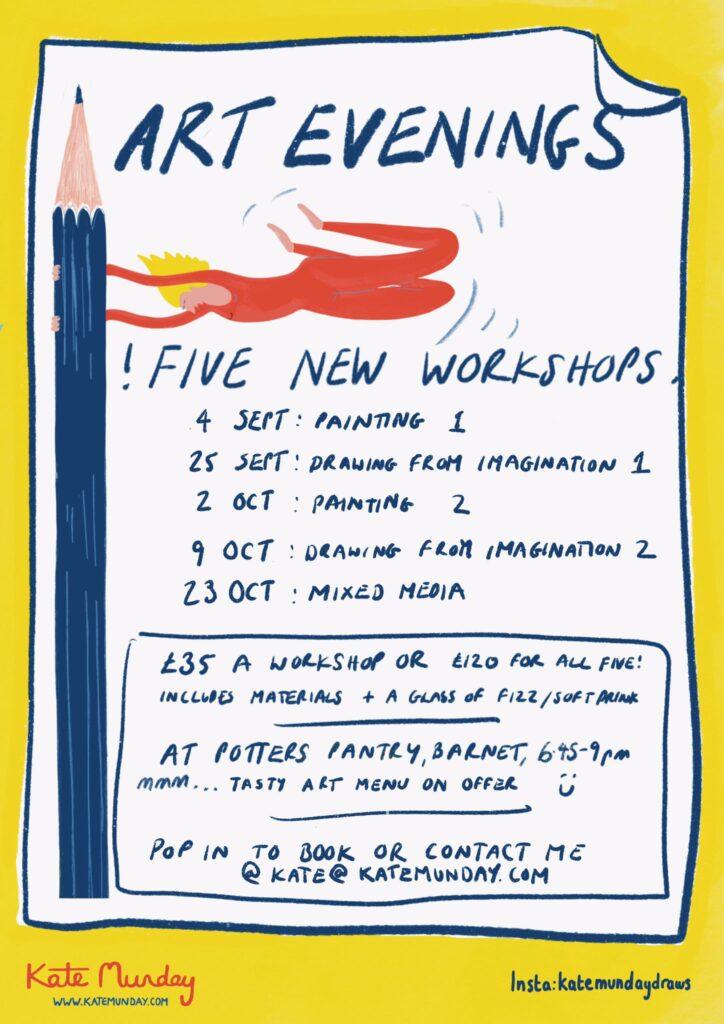 ART EVENINGS
! FIVE NEW WORKSHOPS.
4 SEPT: PAINTING 1
25 SEPT: DRAWING FROM IMAGINATION 1
2 OCT : PAINTING 2
9 OCT : DRAWING FROM IMAGINATION 2
23 OCT : MIXED MEDIA
£35 A WORKSHOP OR £120 FOR ALL FIVE!
INCLUDES MATERIALS + A GLASS OF FIZZ/SOFT DRINK
AT POTTERS PANTRY, BARNET, 6.45-9pm
mmm... TASTY ART MENU ON OFFER
POP IN TO BOOK OR CONTACT ME
@ KATE@KATEMUNDAY.COM
Kate Munday
WWW.KATEMUNDAY.COM
Insta:katemundaydraws